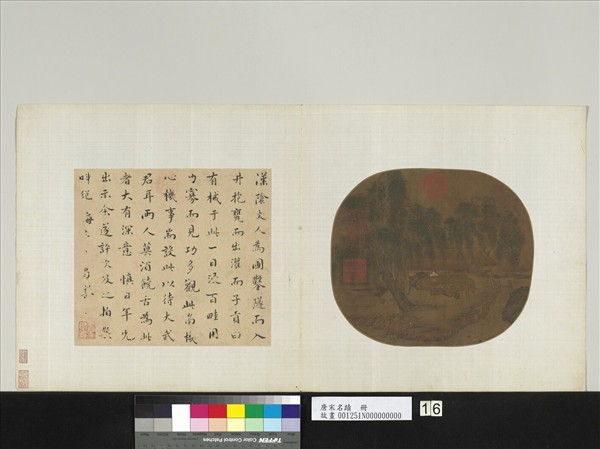 漢陰丈人為圃鑿隧而入
井抱甕而出灌而子貢曰
有械于此一日浸百畦用
力寡而見功多觀此
心機事當設此以待大
君耳兩人莫饒舌為此
者大有深意 慎日年兄
出示余遂
唐宋名蹟 冊
故畫 001251N000000000
16
TIFFEN Color Control Patches